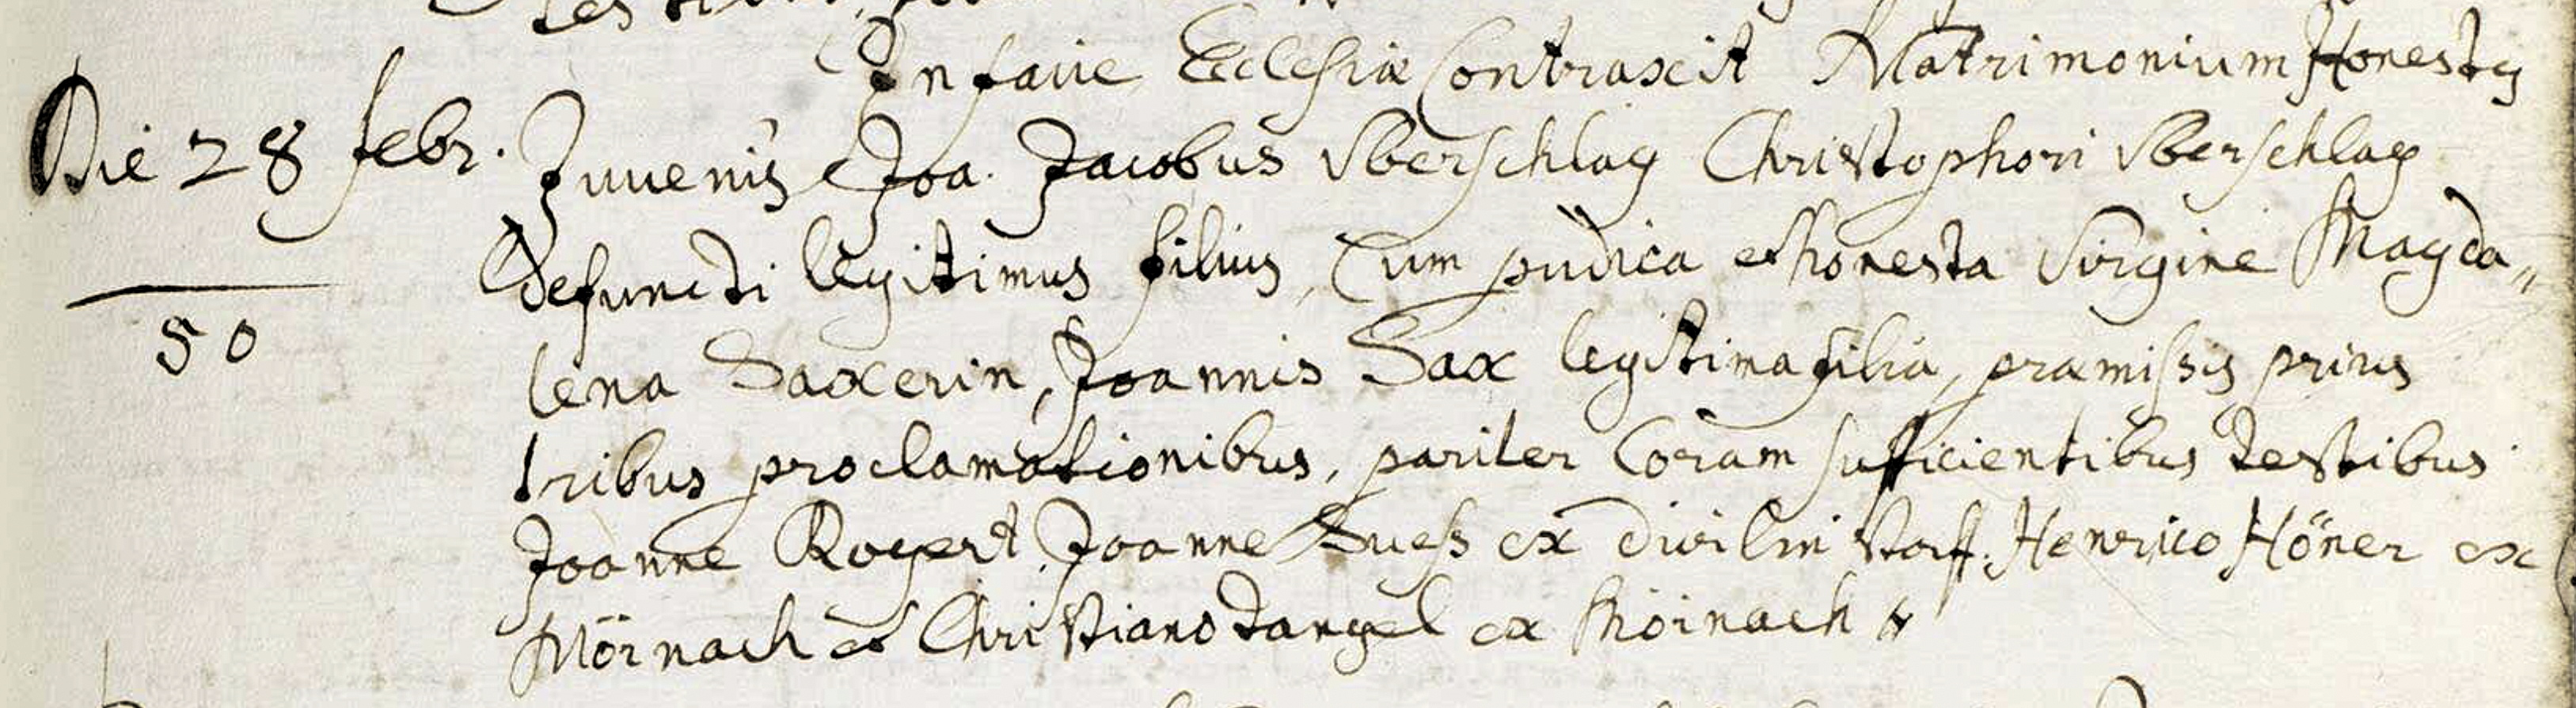 In faciie Ecclesiæ Contraxit Matrimonium Honestus
Die 28 febr. Juuenis Joa. Jacobus Vberschlag Christophori Vberschlag
defuncti legitimus filius, Cum pudica et honesta Virgine Magda„
50
lena Saxerin, Joannis Sax legitima filia, præmissis prius
tribus proclamationibus, pariter Coram sufficientibus testibus
Joanne Rogert, Joanne Suess ex Henrico Höner ex
Mörnach et Christiano dangel ex Mörnach